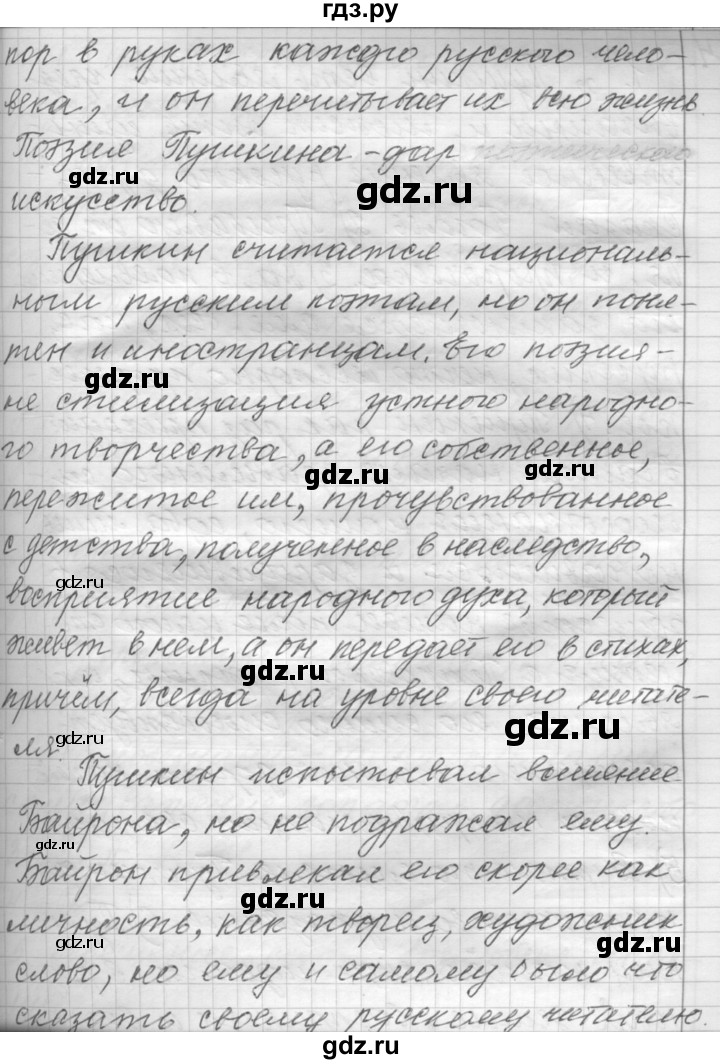 гдз.ру
пор в руках каждго русского чело-
века, и он перечитывает их всю жизнь
Поэзия Пушкина - дар
gdz.ru
gdz.ru
искусство.
Пушкин считается националь-
ным русским поэтам, но он поня-
тен и иностранцам. Его поэзия -
gdz.ru
не стилизация устного народно-
го творчества, а его собственное,
gdz.ru
пережитое им, прочувствованное
с детства, полученное в наследство,
gdz.ru
восприятие народного духа, который
живет в нем, а он передает его в стихах,
gdz.ru
причём, всегда на уровне своего читате-
gdz.ru
ля.
gdz.ru
Пушкин испытывал влияние
Байрона, но не подражал ему.
Байрон привлекал его скорее как
gdz.ru
личность, как творец, художник
gdz.ru
gdz.ru
слово, но ему и самому было что
сказать своему русскому читателю.